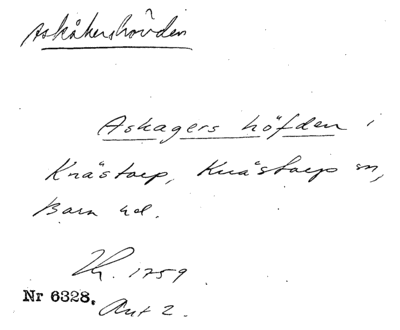 Askåkershövden
Askagers höfden i
Knästorp, Knästorps sn,
Bara hd.
1759
Nr 6328.
Akt 2.